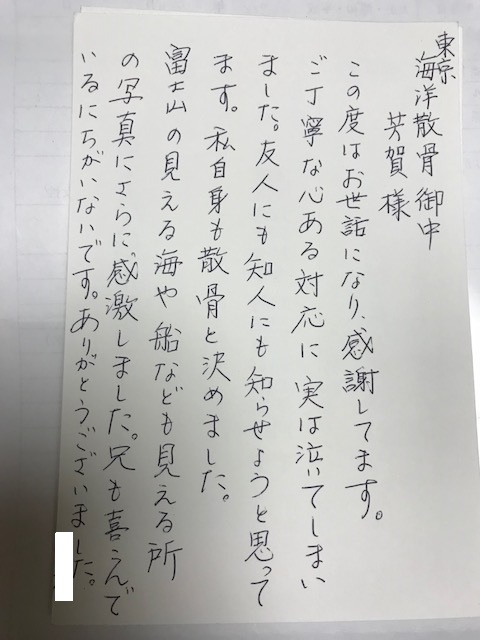 東京
海洋散骨御中
芳賀様
この度はお世話になり、感謝してます。
ご丁寧な心ある対応に実は泣いてしまい
ました。友人にも知人にも知らせようと思って
ます。私自身も散骨と決めました。
富士山の見える海や船なども見える所
の写真にさらに感激しました。兄も喜んで
いるにちがいないです。ありがとうございました。